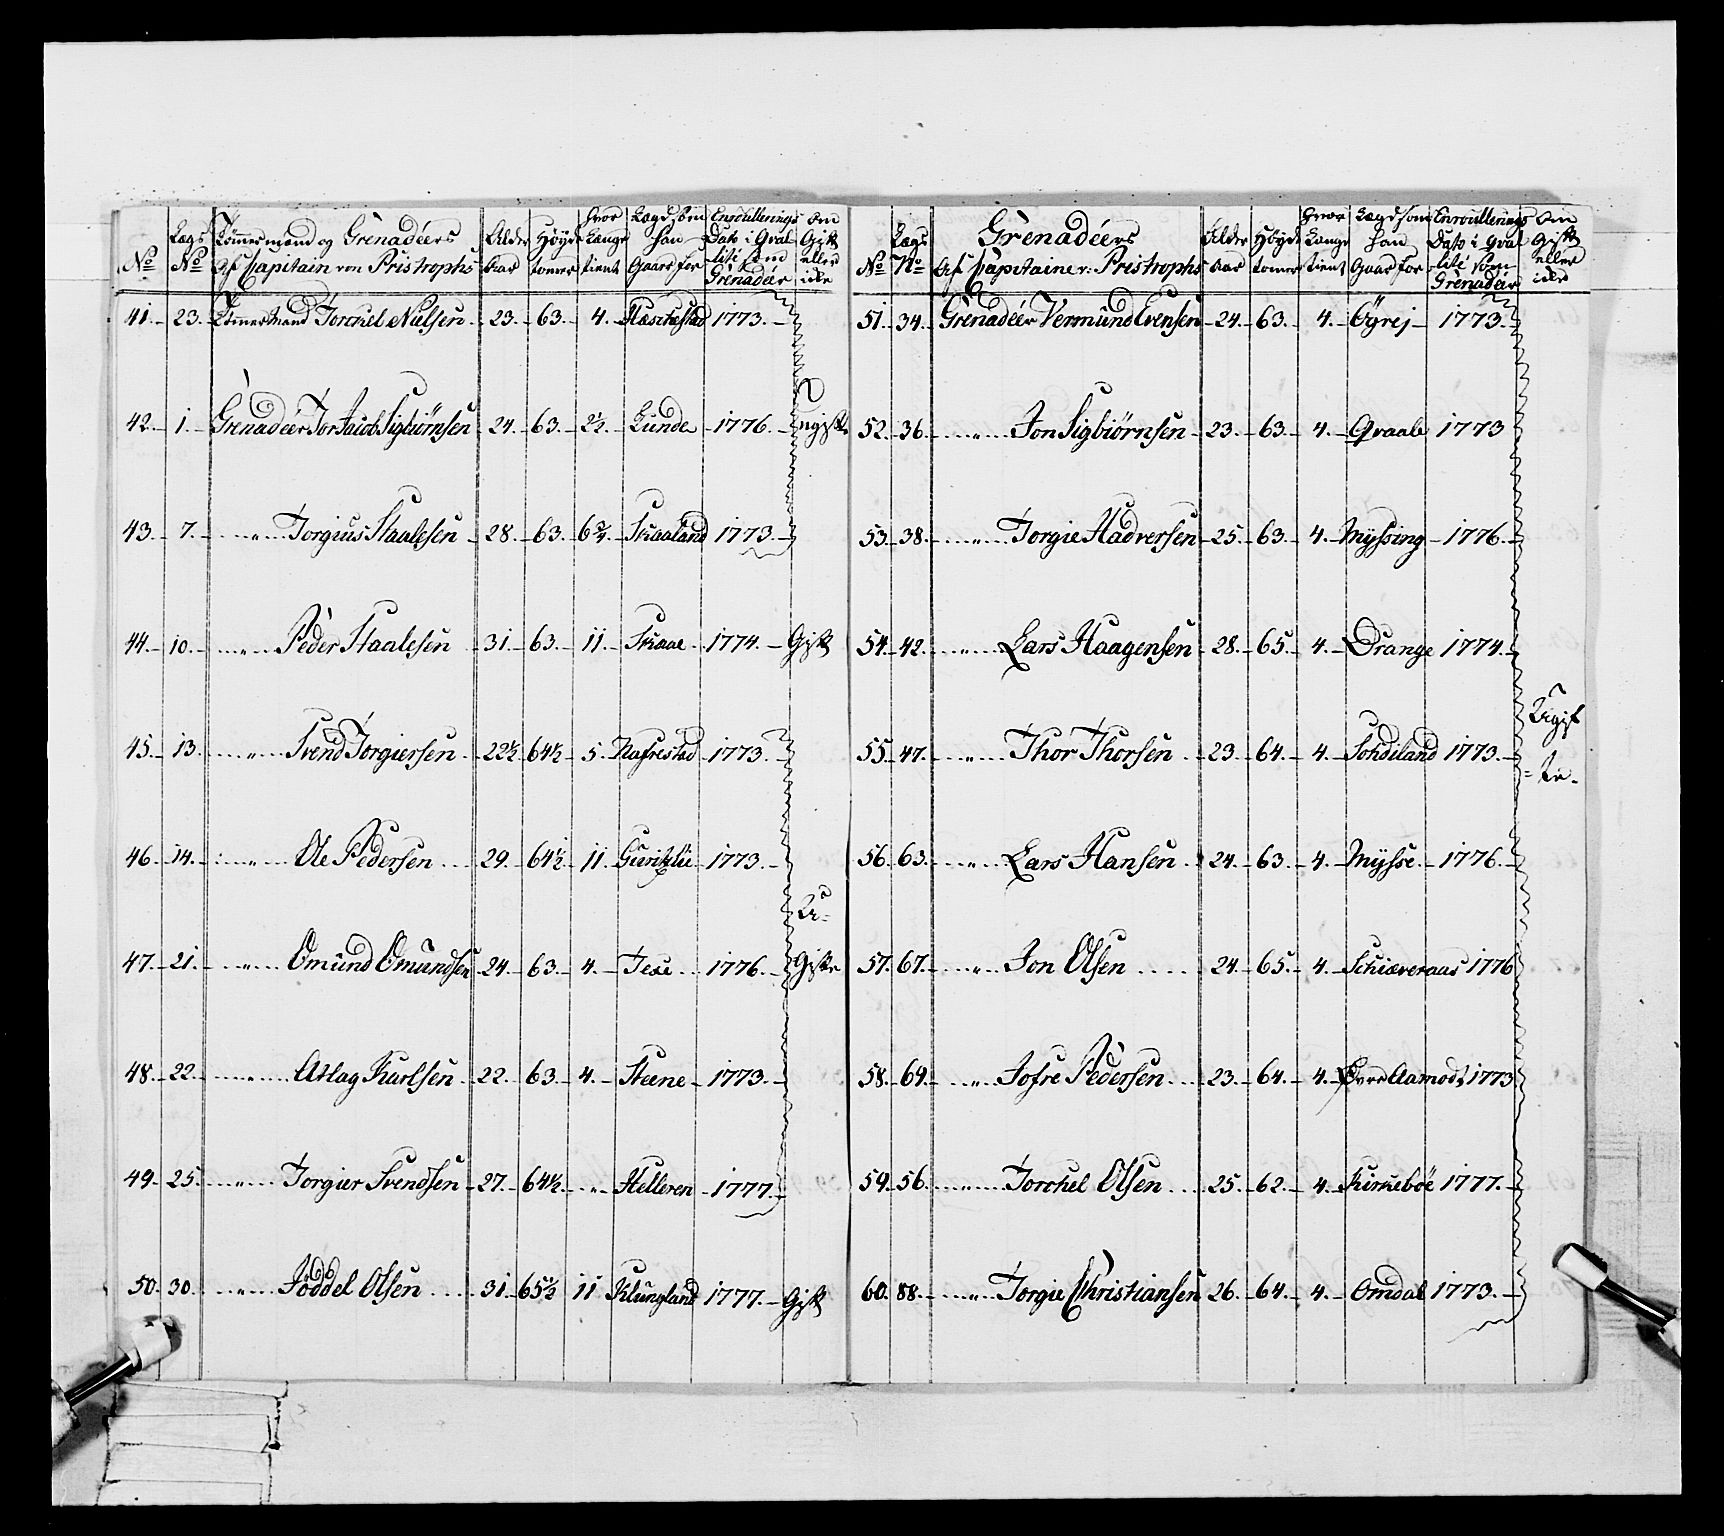 No | Lægs No | Tömmermænd og Grenadéers af Capitain von Pristrophs | Alder Aar | Höyde tomer | hvor Længe tient | Lægd som han Gaar for | Enroullerings Dato i Qvalité som Grenadéer | Om Gift eller ikke
41. 23. Tömmermand Torchel Nielsen 23. 63. 4. 1773.
42. 1. Grenadéer Tor Jacob Sigbiörnsen 24. 63. 2½ Lunde 1776. Ugifte
43. 7. " Torgius Staalesen 28. 63. 6¾ Skaaland 1773.
44. 10. " Peder Staalesen 31. 63. 11. Skaae 1774. Gift
45. 13. " Svend Torgiersen 22½ 64½ 5. Rafrestad 1773.
46. 14. " Ole Pedersen 29. 64½ 11. 1773.
U-
47. 21. " Omund Omundsen 24. 63. 4. 1776. Gifte
48. 22. " Atlag Karlsen 22. 63. 4. Steene 1773.
49. 25. " Torgier Svendsen 27. 64½ " Helleren 1777.
50. 30. " Joddel Olsen 31. 65½ 11 Klungland 1777. Gift
No | Lægs No | Grenadéers af Capitaine v: Pristrophs | Alder Aar | Höyde tomer | hvor Længe tient | Lægd som han Gaar for | Enroullerings Dato i Qvalité som Grenadéer | Om Gift eller ikke
51. 34. Grenadéer Vermund Evensen 24. 63. 4. Öyrej 1773.
52. 36. " Jon Sigbiörnsen 23. 63. 4. Qvaale 1773
53. 38. " Torgie Hadversen 25. 63. 4. Myssing 1776.
54. 42. " Lars Haagensen 28. 65. 4. Drange 1774.
Ugif
55. 47. " Thor Thorsen 23. 64. 4. Sohdiland 1773. -te.
56. 63. " Lars Hansen 24. 63. 4. Mysse 1776.
57. 67. " Jon Olsen 24. 65. 4. Schiæveraas 1776
58. 69. " Tofre Pedersen 23. 64. 4. Övre Aamodt 1773
59. 56. " Torchel Olsen 25. 62. 4. Kirkeböe 1777.
60. 88. " Torgie Christiansen 26. 64. 4. Omdal 1773.